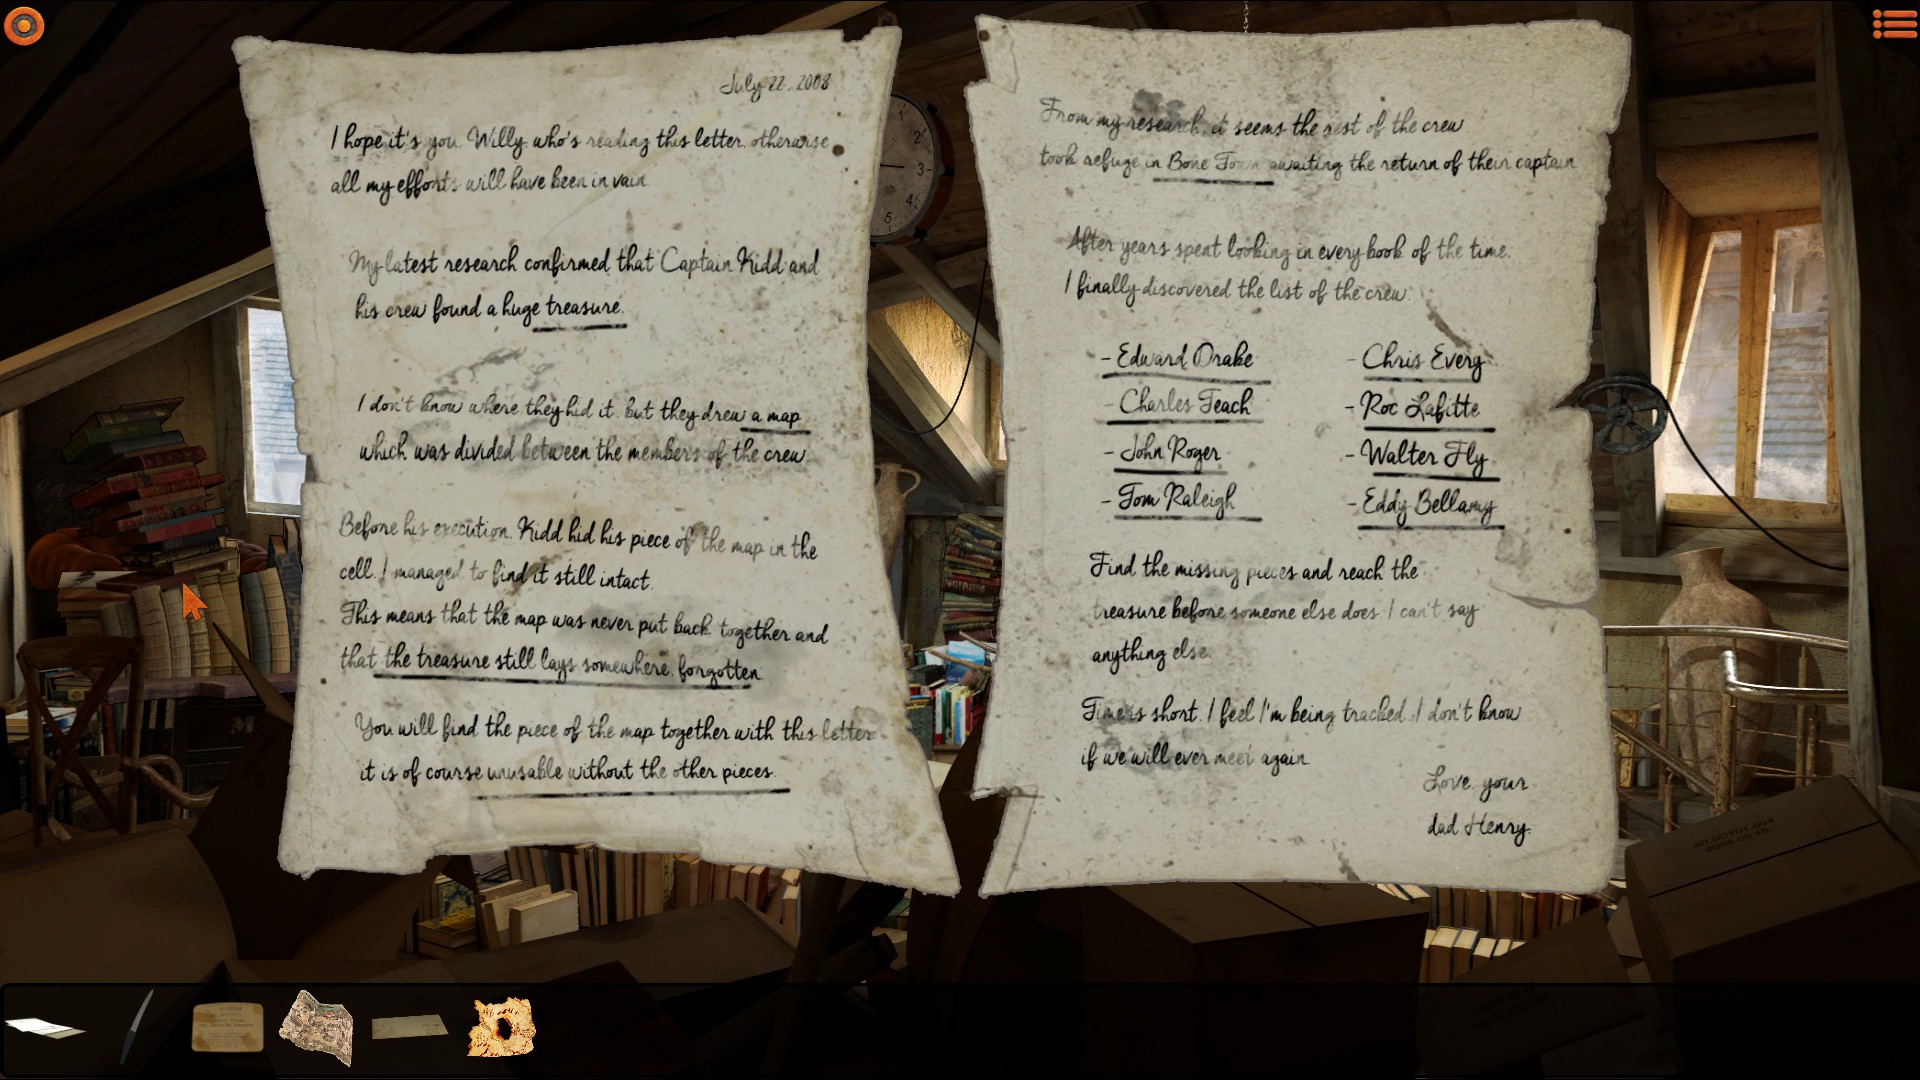 July 22, 2008
I hope it's you, Willy who's reading this letter, otherwise
all my efforts will have been in vain.
My latest research confirmed that Captain Kidd and
his crew found a huge treasure.
I don't know where they hid it, but they drew a map
which was divided between the members of the crew.
Before his execution, Kidd hid his piece of the map in the
cell. I managed to find it still intact.
This means that the map was never put back together and
that the treasure still lays somewhere, forgotten.
You will find the piece of the map together with this letter
it is of course unusable without the other pieces.
From my research, it seems the rest of the crew
took refuge in Bone Town awaiting the return of their captain
After years spent looking in every book of the time,
I finally discovered the list of the crew:
- Edward Drake
- Charles Teach
- John Roger
- Tom Raleigh
- Chris Every
- Roc Lafitte
- Walter Fly
- Eddy Bellamy
Find the missing pieces and reach the
treasure before someone else does. I can't say
anything else.
Time is short. I feel I'm being tracked. I don't know
if we will ever meet again.
Love, your
dad Henry.
1
2
3
4
5